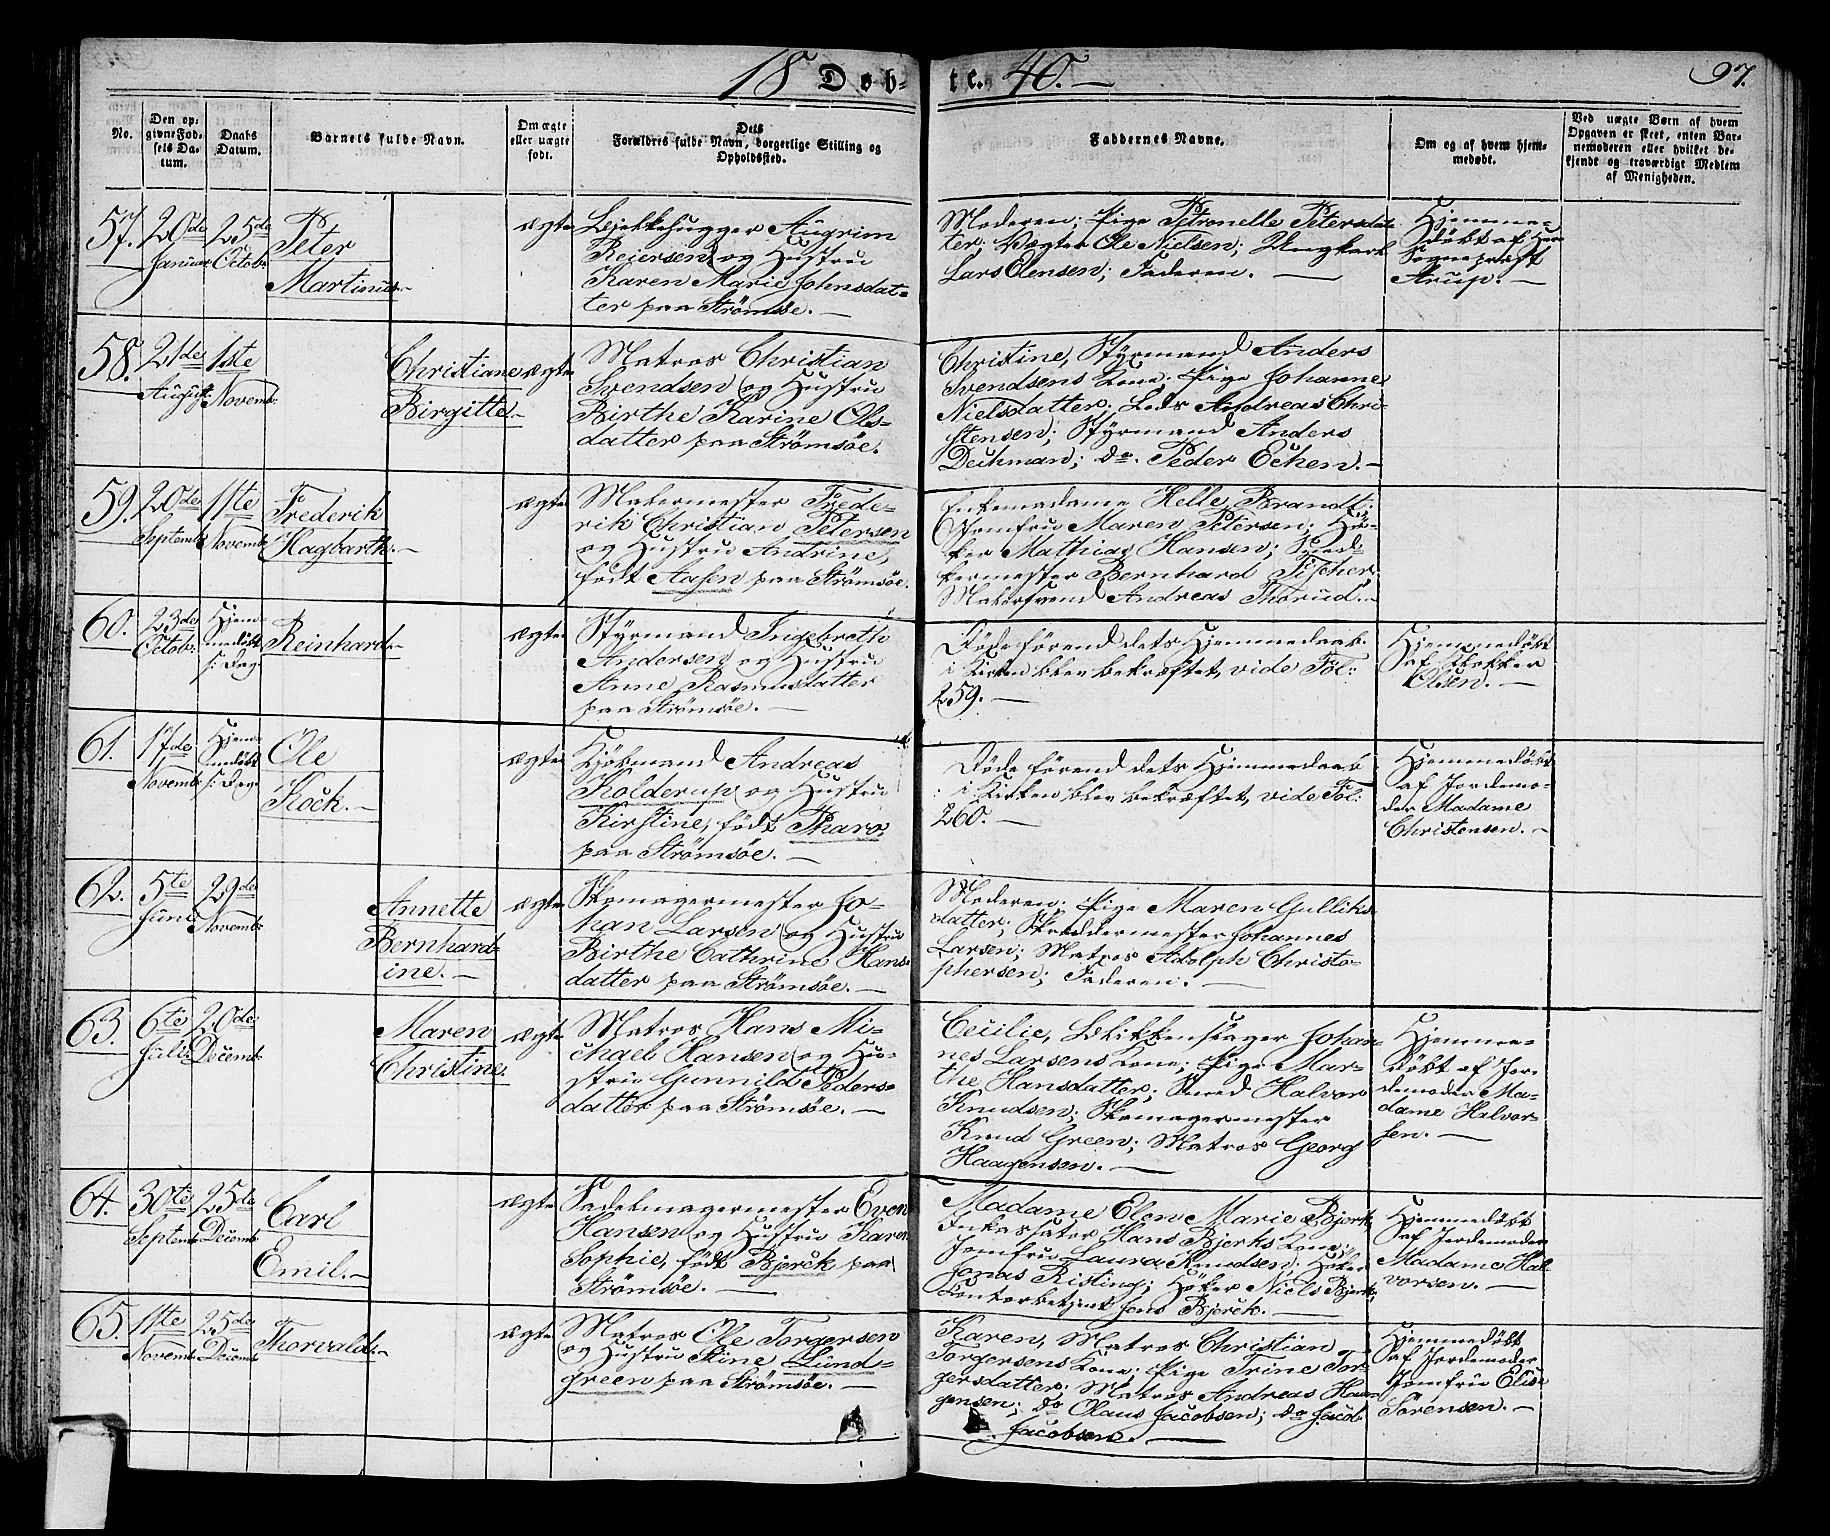 18 Døb-
te. 40. –
97.
No.
Den op-
givne Fød-
sels Da-
tum.
Daabs
Datum.
Barnets fulde Navn.
Om ægte
eller uægte
født.
Dets
Forældres fulde Navn, borgerlige Stilling og
Opholdssted.
Faddernes Navne.
Om og af hvem hjem-
medøbt.
Ved uægte Børn af hvem
Opgaven er skeet, enten Bar-
nemoderen eller hvilket be-
kjendt og troværdigt Medlem
af Menigheden.
57.
20de
Januar
25de
Octob:
Peter
Martinus. –
ægte
Blikkehugger Augrim
Reiersen og Hustru
Karen Marie Johnsdat-
ter paa Strömsöe. –
Moderen; Pige Petronelle Petersdat-
ter; Vægter Ole Nielsen;
Lars Olensen; Faderen. –
Hjemme-
döbt af Her
Sognepræst
Arup. –
58.
21de
August
1ste
Novemb:
Christiane
Birgitte. –
ægte
Matros Christian
Svendsen og Hustru
Birthe Karine Ols-
datter paa Strömsöe.
Christine, Styrmand Anders
Svendsens Kone; Pige Johanne
Nielsdatter; Lods Andreas Chri-
stensen; Styrmand Anders
Deichman; do. Peder Echen. –
59.
20de
Septemb:
1ste
Novemb:
Frederik
Hagbarth. –
ægte
Malermester Frede-
rik Christian Petersen
og Hustru Andrine,
född Aasen paa Strömsöe.
Enkemadame Helle Brandt;
Jomfru Maren Petersen; Hö-
ker Mathias Hansen; Sned-
kermester Bernhard Fischer;
Malersvend Andreas Thorud. –
60.
23de
Octob:
Hjem-
medöbt
s: Dag
Reinhard. –
ægte
Styrmand Ingebreth
Andersen og Hustru
Anne Rasmusdatter
paa Strömsöe. –
Döde förend dets Hjemmedaab
i Kirken blev bekræftet, vide Fol:
259. –
Hjemmedöbt
af Klokker
Olsen. –
61.
17de
Novemb:
Hjem-
medöbt
s: Dag
Ole
Kock. –
ægte
Kjöbmand Andreas
Kolderup og Hustru
Kirstine, född Tharo
paa Strömsöe. –
Döde förend dets Hjemmedaab
i Kirken blev bekræftet, vide Fol:
260. –
Hjemmedöbt
af Jordemo-
der Madame
Christensen. –
62.
5te
Juni
29de
Novemb:
Annette
Bernhard-
ine. –
ægte
Skomagermester Jo-
han Larsen og Hustru
Birthe Cathrine Hans-
datter paa Strömsöe. –
Moderen; Pige Maren Gulliks-
datter; Skræddermester Johannes
Larsen; Matros Adolph Christo-
phersen; Faderen. –
63.
6te
Juli
20de
Decemb:
Maren
Christine.
ægte
Matros Hans Mi-
chael Hansen og Hu-
stru Gunnild Peders-
datter paa Strömsöe. –
Cecilie, Blikkenslager Johan-
nes Larsens Kone; Pige Mar-
the Hansdatter; Smed Halvor
Knudsen; Skomagermester
Knud Green; Matros Georg
Haagensen. –
Hjemme-
döbt af Jor-
demoder Ma-
dame Halvor-
sen. –
64.
30te
Septemb:
25de
Decemb:
Carl
Emil. –
ægte
Sadelmagermester Even
Hansen og Hustru Karen
Sophie, född Bjerck paa
Strömsöe. –
Madame Elen Marie Bjerk,
Inkassator Hans Bjerks Kone;
Jomfru Laura Knudsen; Höker
Jonas Risting; Höker Niels Bjerk;
Contorbetjent Jens Bjerck. –
Hjemmedöbt
af Jordemoder
Madame Hal-
vorsen. –
65.
11te
Novemb:
25de
Decemb:
Thorvald. –
ægte
Matros Ole Torgersen
og Hustru Stine Lund-
green paa Strömsöe. –
Karen, Matros Christian
Torgersens Kone; Pige Trine Tor-
gersdatter; Matros Andreas Haa-
gensen; do Olaus Jacobsen; do Jacob
Jacobsen. –
Hjemmedöbt
af Jordemoder
Jomfru Elise
Sörensen. –